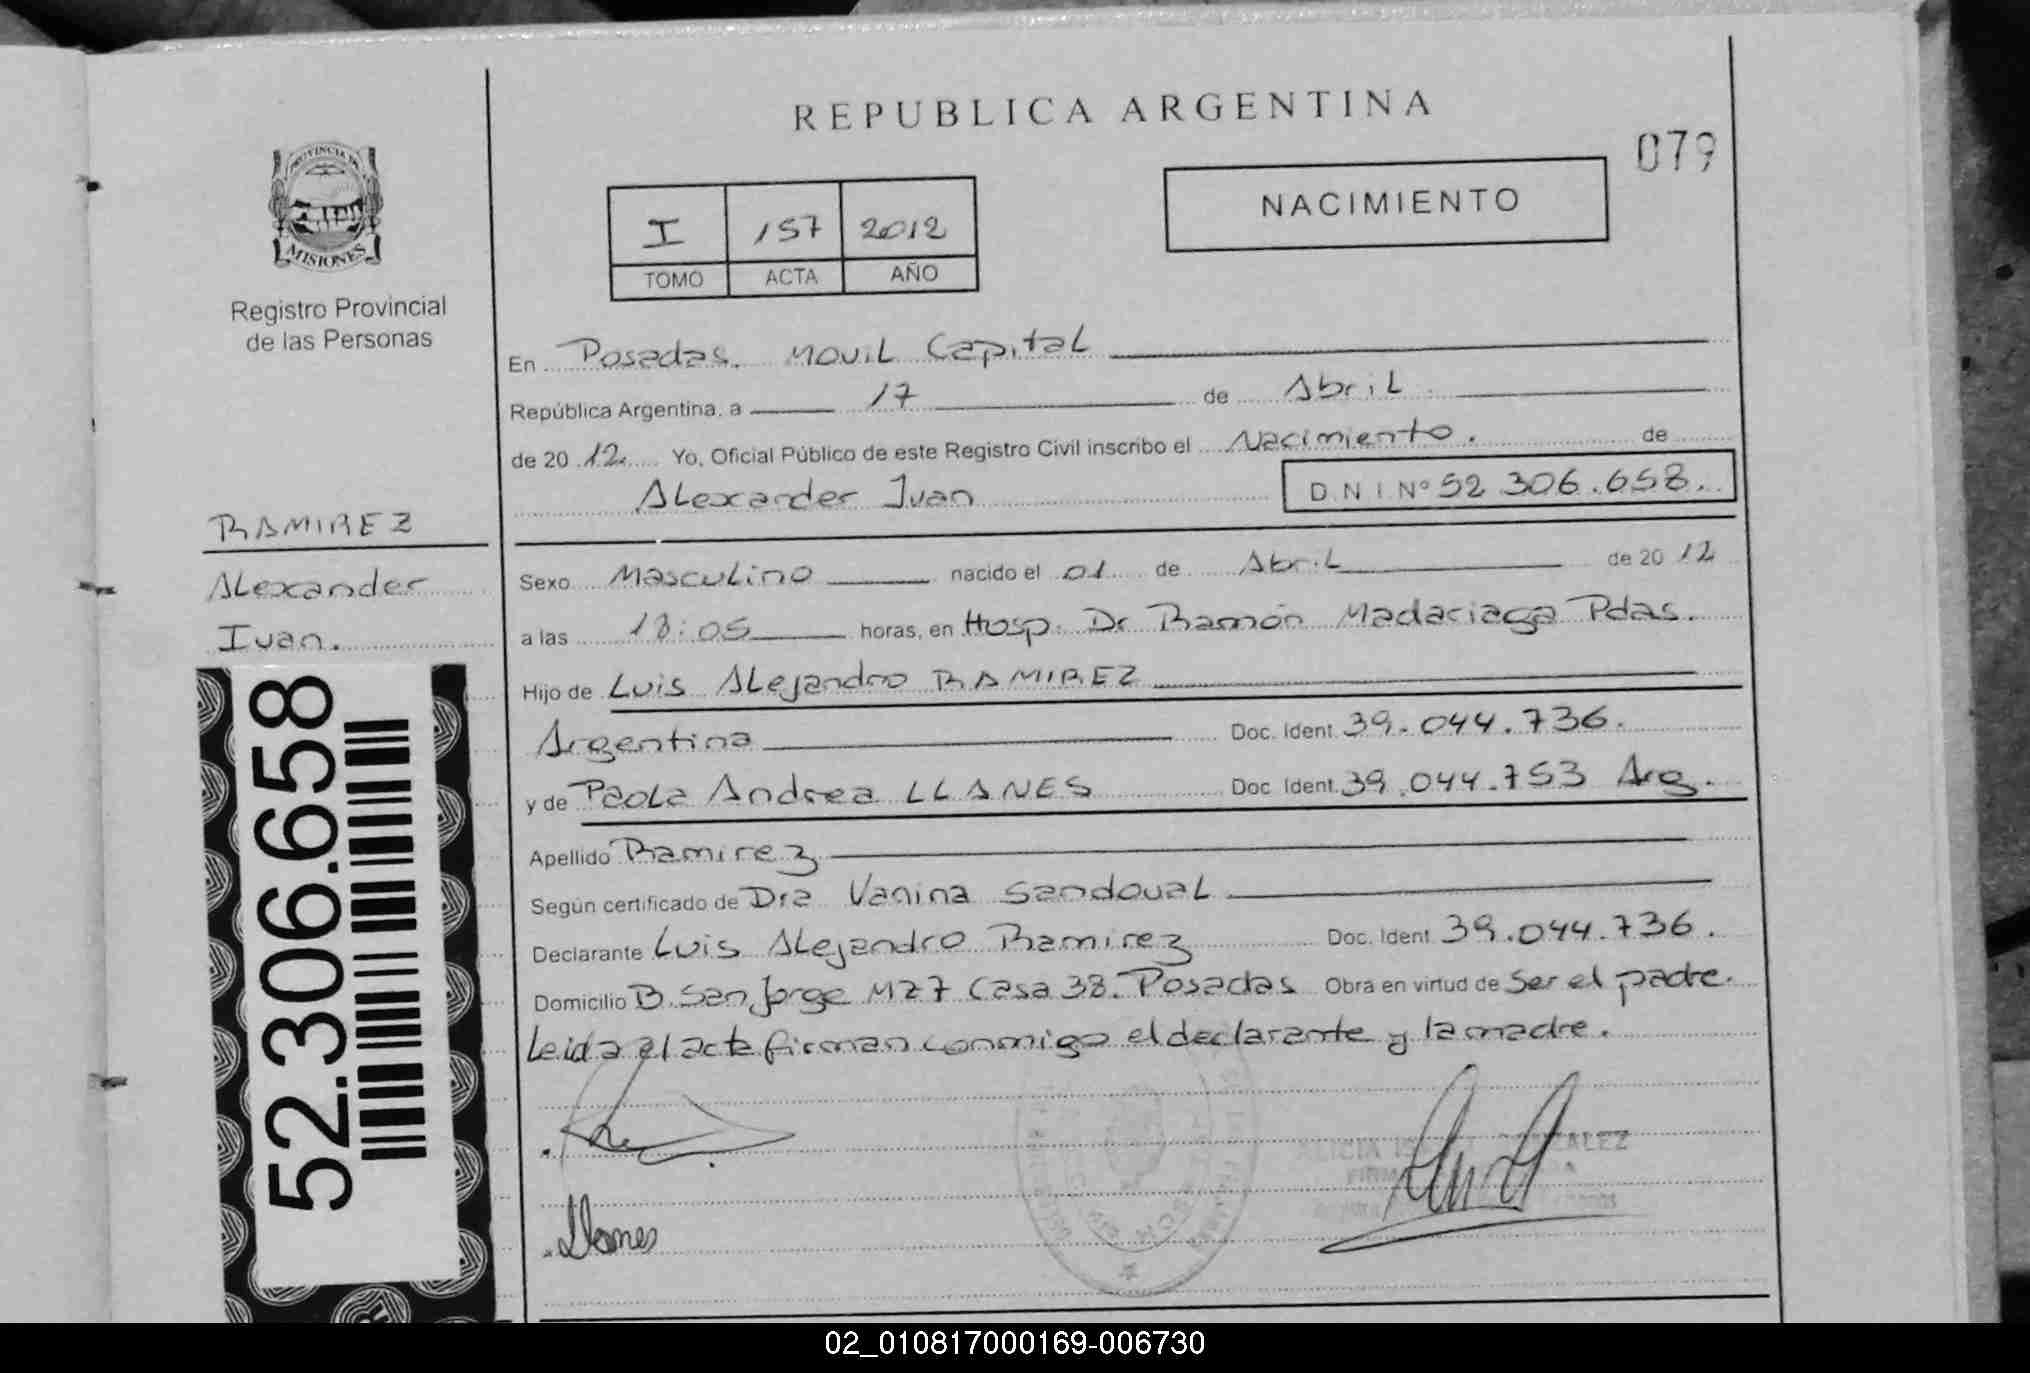 REPUBLICA ARGENTINA
079
NACIMIENTO
I 157 2012
TOMO ACTA AÑO
PROVINCIA DE
MISIONES
Registro Provincial
de las Personas
En Posadas. Movil Capital
República Argentina, a 17 de Abril
de 20 12 Yo, Oficial Público de este Registro Civil inscribo el Nacimiento. de
Alexander Ivan D.N.I. Nº 52.306.658.
RAMIREZ
Alexander
Ivan.
52.306.658
Sexo Masculino nacido el 01 de Abril de 20 12
a las 18:05 horas, en Hosp. Dr Ramón Madariaga Pdas.
Hijo de Luis Alejandro RAMIREZ
Argentina Doc. Ident. 39.044.736.
y de Paola Andrea LLANES Doc. Ident. 39.044.753 Arg.
Apellido Ramirez
Según certificado de Dra Vanina Sandoval
Declarante Luis Alejandro Ramirez Doc. Ident. 39.044.736.
Domicilio B. San Jorge MZ7 Casa 38. Posadas Obra en virtud de Ser el padre.
Leida el acta firman conmigo el declarante y la madre.
Llanes
ALICIA
02_010817000169-006730